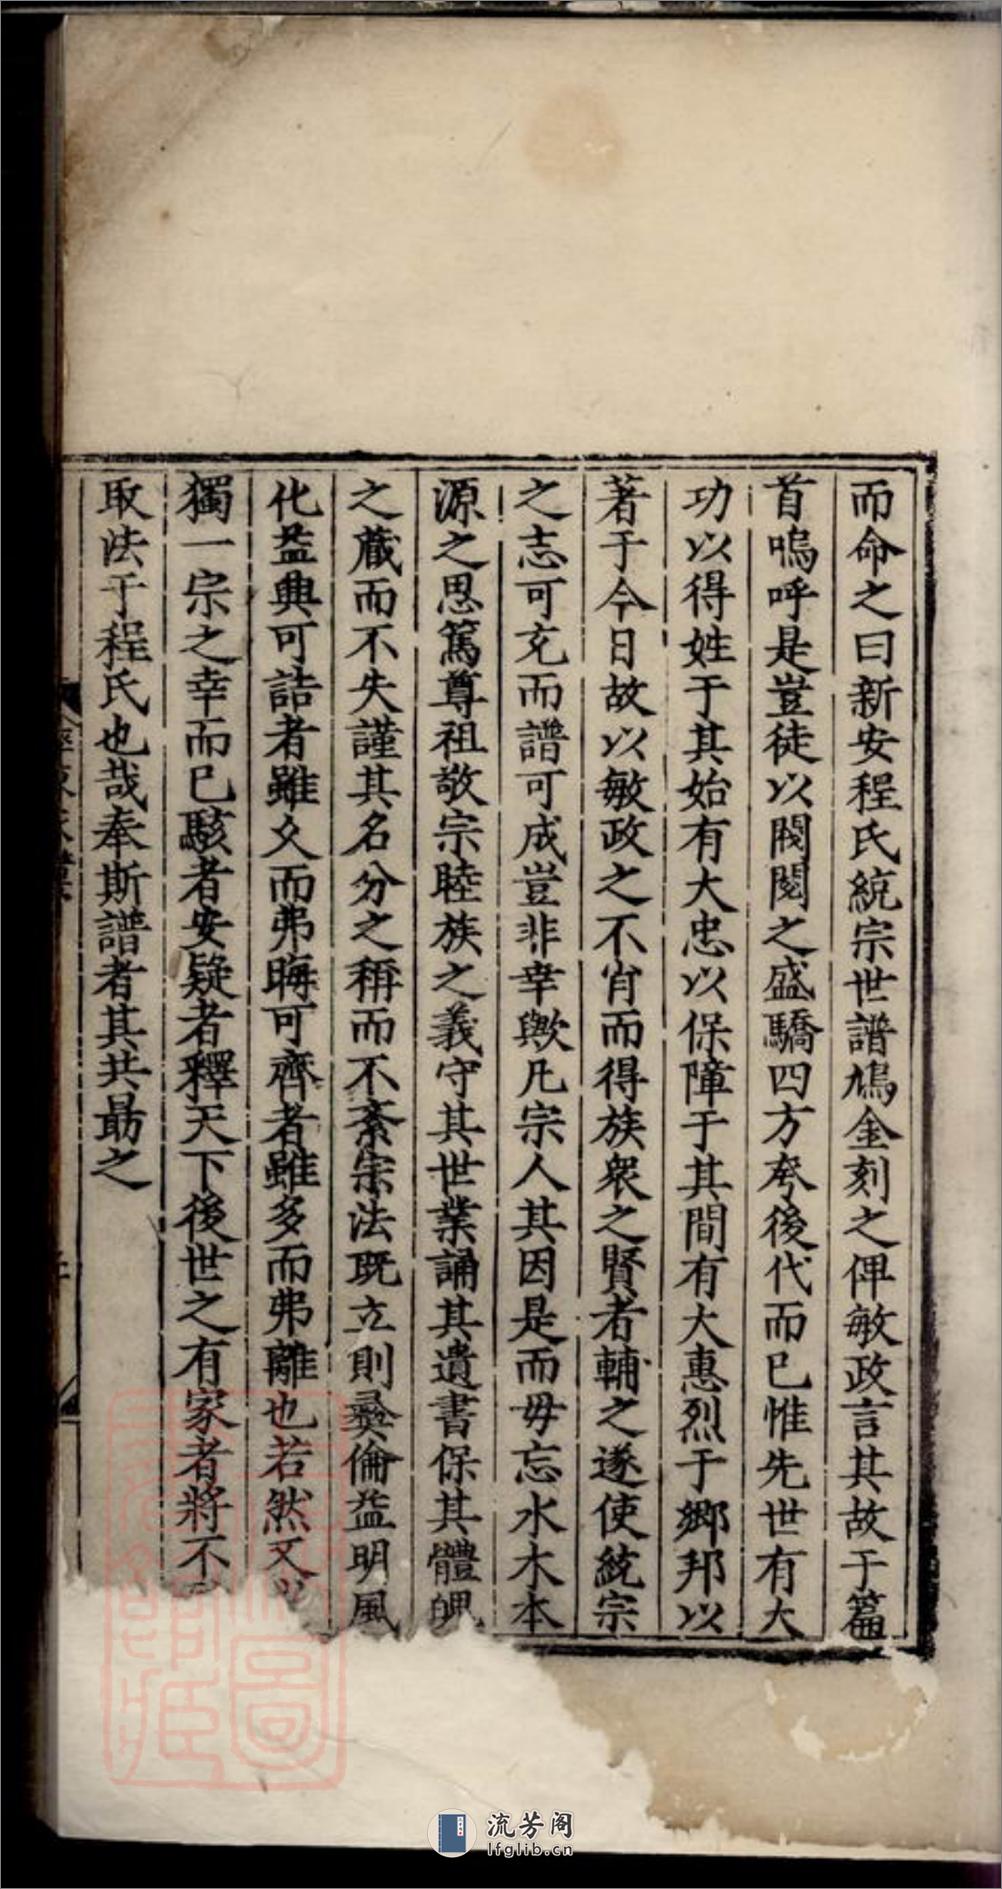 而命之曰新安程氏統宗世譜鳩金刻之俾敏政言其故于篇
首嗚呼是豈徒以閥閱之盛驕四方夸後代而已惟先世有大
功以得姓于其始有大忠以保障于其間有大惠烈于鄉邦以
著于今日故以敏政之不肖而得族衆之賢者輔之遂使統宗
之志可充而譜可成豈非幸歟凡宗人其因是而毋忘水木本
源之思篤尊祖敬宗睦族之義守其世業誦其遺書保其體魄
之藏而不失謹其名分之稱而不紊宗法既立則彛倫益明風
化益興可詰者雖久而弗晦可齊者雖多而弗離也若然又
獨一宗之幸而已駭者安疑者釋天下後世之有家者將不
取法于程氏也哉奉斯譜者其共勗之
流芳阁
lfglib.cn